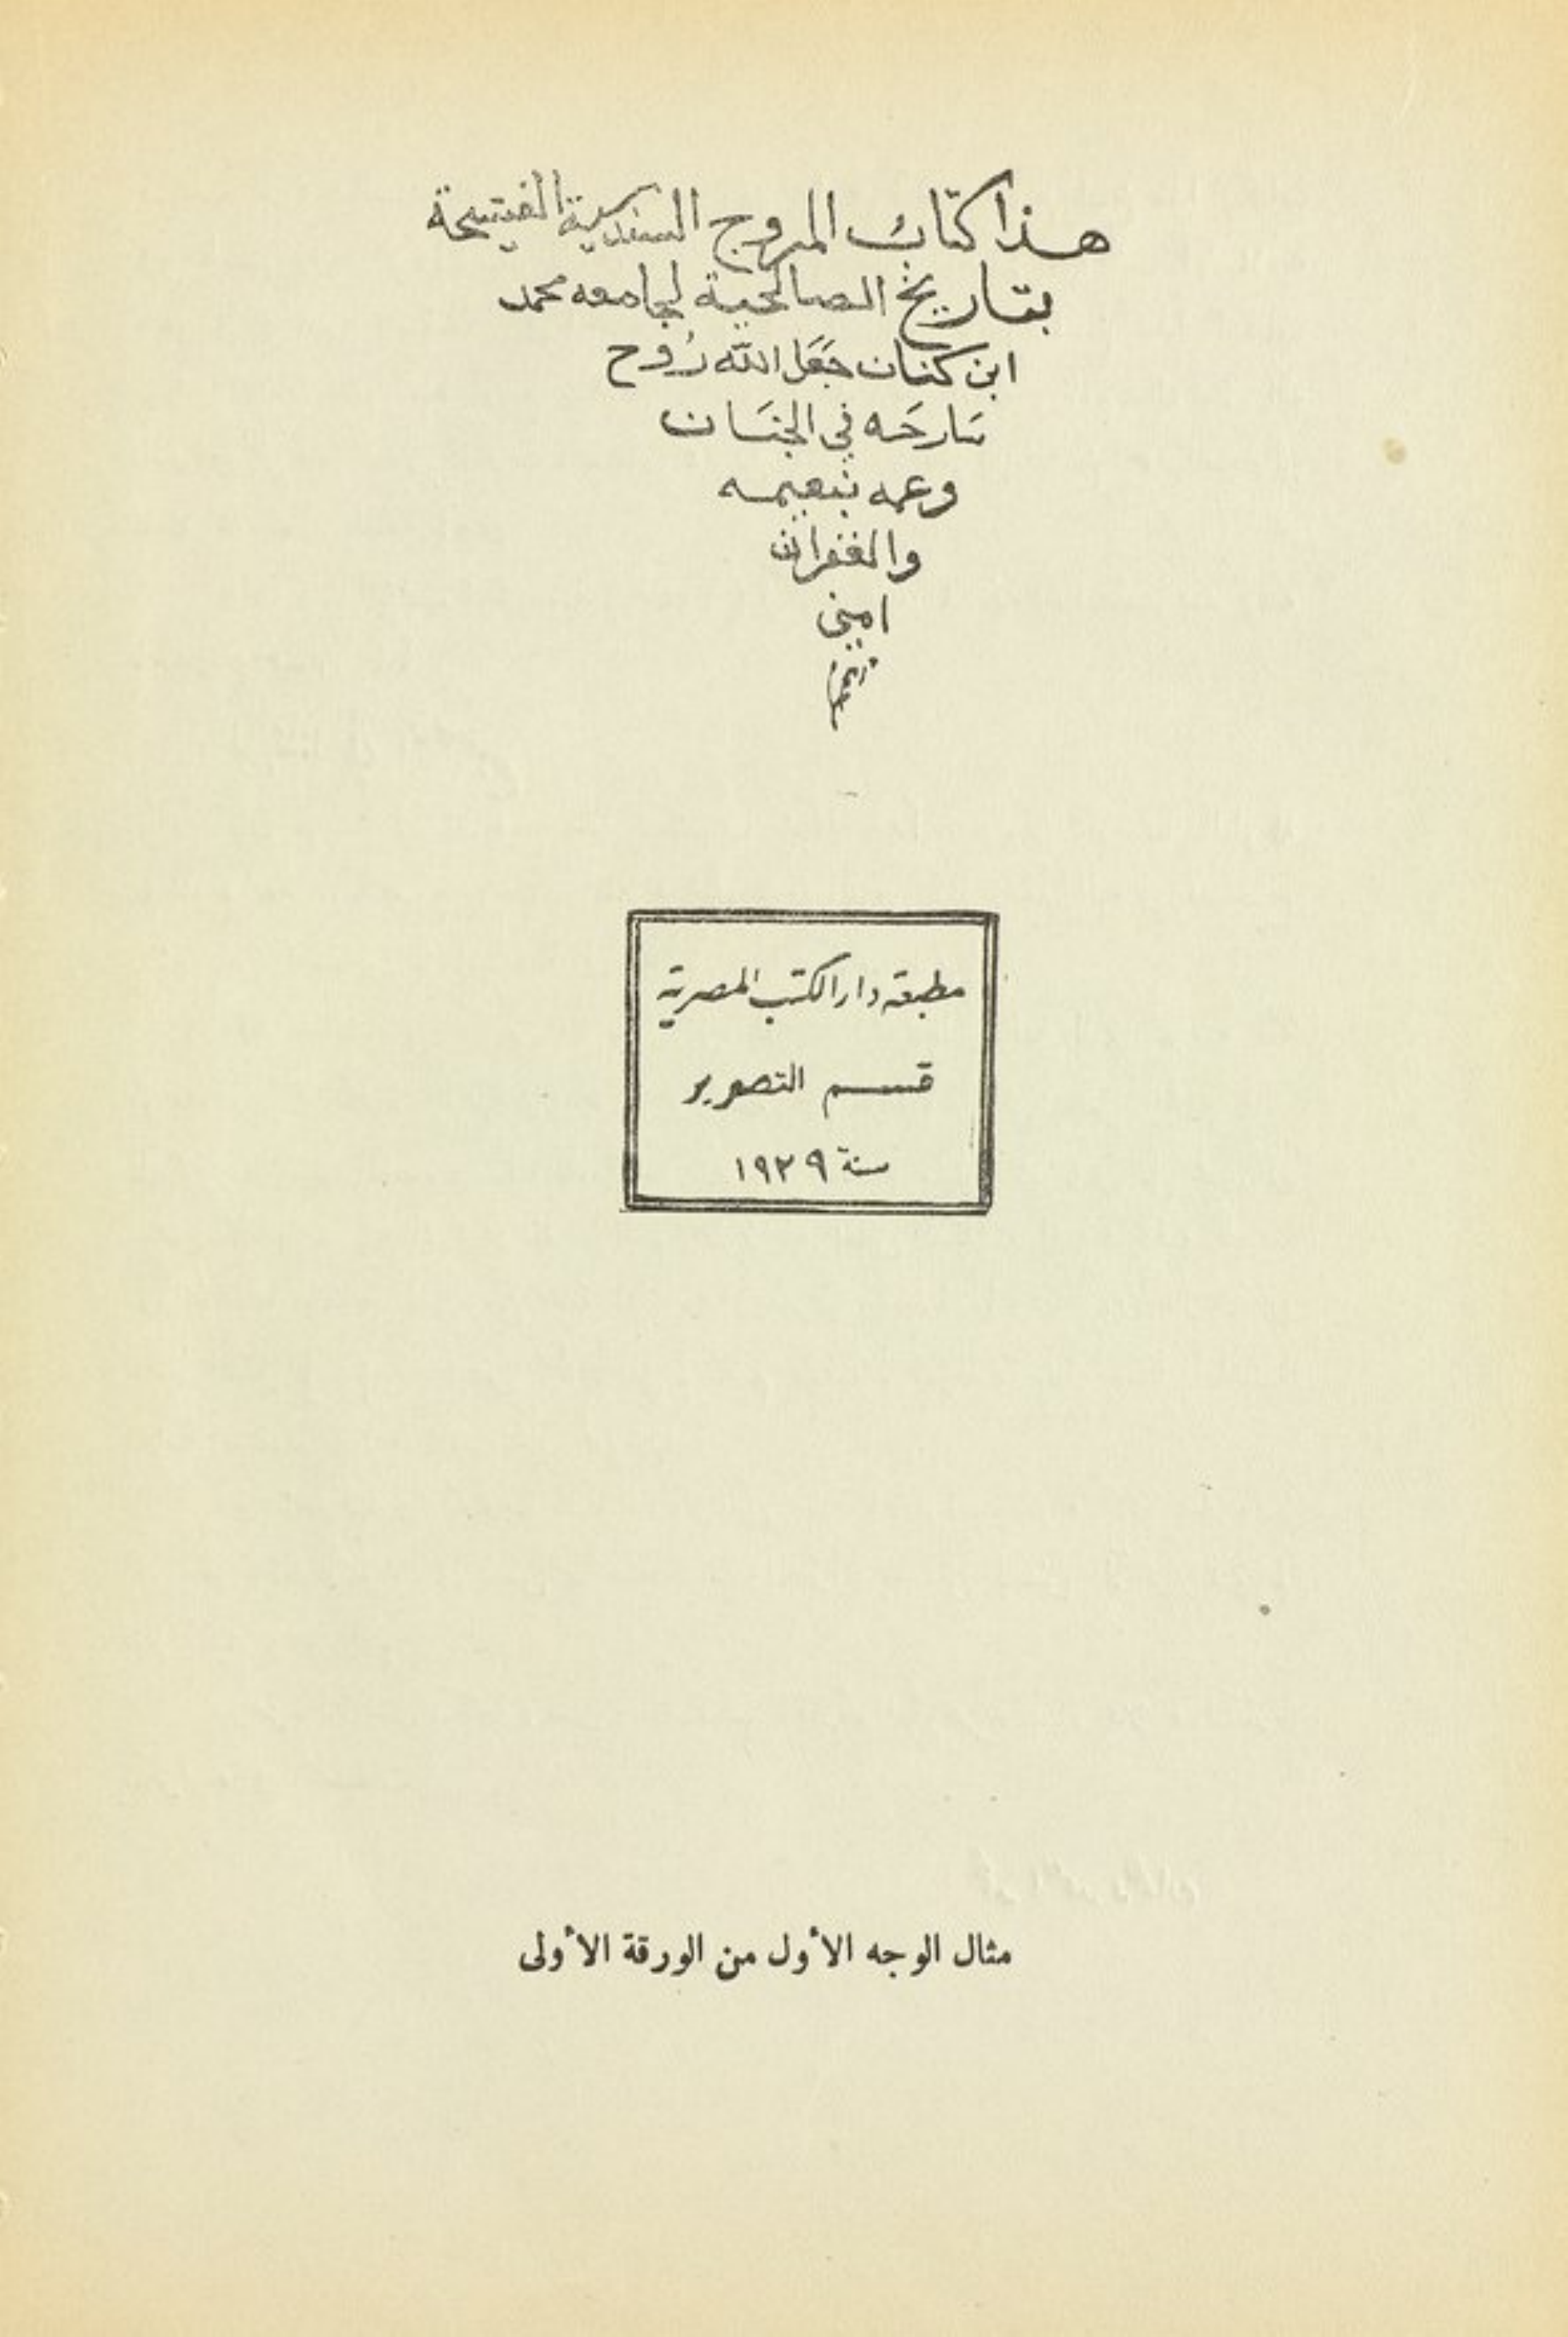 هذا كتاب المروج السندسية الفيسحة
بتاريخ الصالحية لجامعه محمد
ابن كنان جَعَل الله رُوح
سَارحَه في الجنَان
وعمه بنعيمه
والغفران
امين
مطبعة دار الكتب المصرية
قسم التصوير
سنة ١٩٢٩
مثال الوجه الأول من الورقة الأولى